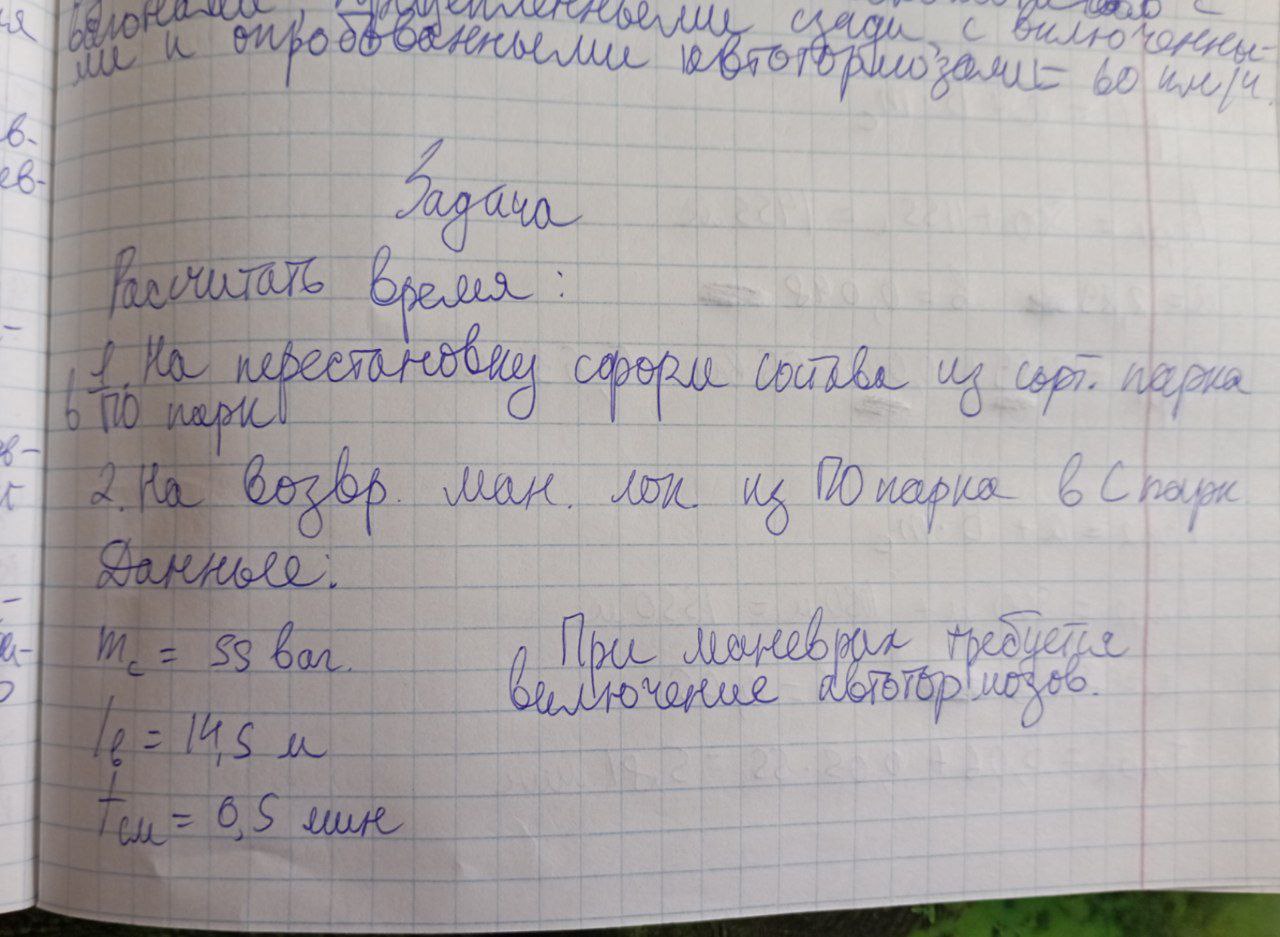 вагонами, прицепленными сзади, с включенны-
ми и опробованными автотормозами = 60 км/ч.
Задача
Рассчитать время:
1. На перестановку сформ состава из сорт. парка
в ПО парк
2. На возвр. ман. лок. из ПО парка в С парк
Данные:
mс = 55 ваг.
lв = 14,5 м
tсм = 0,5 мин
При маневрах требуется
включение автотормозов.